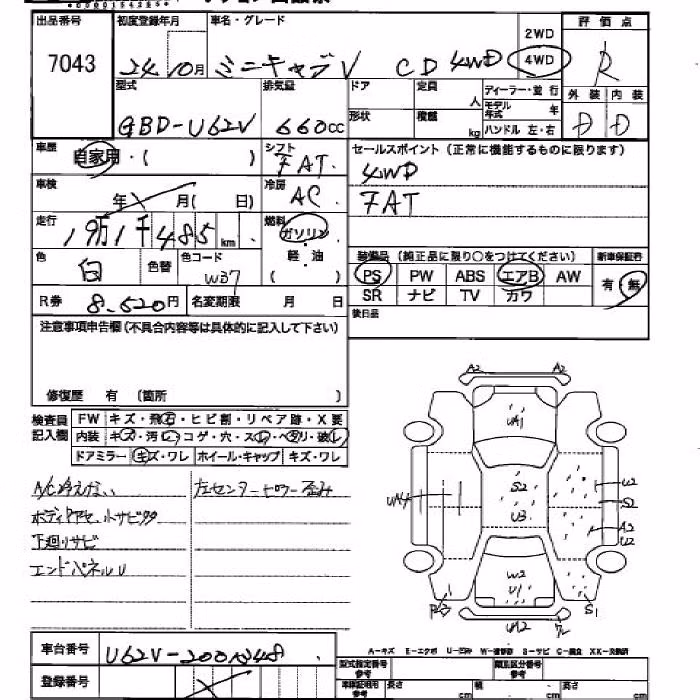 出品番号 初度登録年月 車名・グレード 2WD 評価点
7043 24 10月 ミニキャブV CD 4WD 4WD R
型式 排気量 ドア 定員 人 ディーラー・並行 外装 内装
GBD-U62V 660cc 形状 積載 kg モデル年式 年 D D
ハンドル 左・右
車歴 自家用・( ) シフト FAT セールスポイント(正常に機能するものに限ります)
4WD
車検 年 月( 日) 冷房 AC FAT
走行 19万1千485km 燃料 ガソリン
軽・油
( )
色 白 色替 色コード W37
装備品(純品に限り○をつけてください) 新車保証書
PS PW ABS エアB AW 有・無
SR ナビ TV カワ
R券 8.520円 名変期限 月 日 後日品
注意事項申告欄(不具合内容等は具体的に記入して下さい)
修復歴 有 (箇所 )
検査員 FW キズ・飛石・ヒビ割・リペア跡・X要
記入欄 内装 キズ・汚レ・コゲ・穴・スレ・ヘタリ・破レ
ドアミラー キズ・ワレ ホイール・キャップ キズ・ワレ
A/C冷えない 左センターピラー歪み
ボディヤセ、小サビタタ
下廻りサビ
エンドパネルU
A2 A2
UA1
S2
U3
UA4
U2
S2
A2
U2
W2
U1
S1
UA2
車台番号 U62V-
登録番号
A-キズ E-エクボ U-凹み W-補修跡 S-サビ C-腐食 XX-交換済
型式指定番号 参考 類別区分番号 参考
車庫証明用 参考 長さ cm 幅 cm 高さ cm